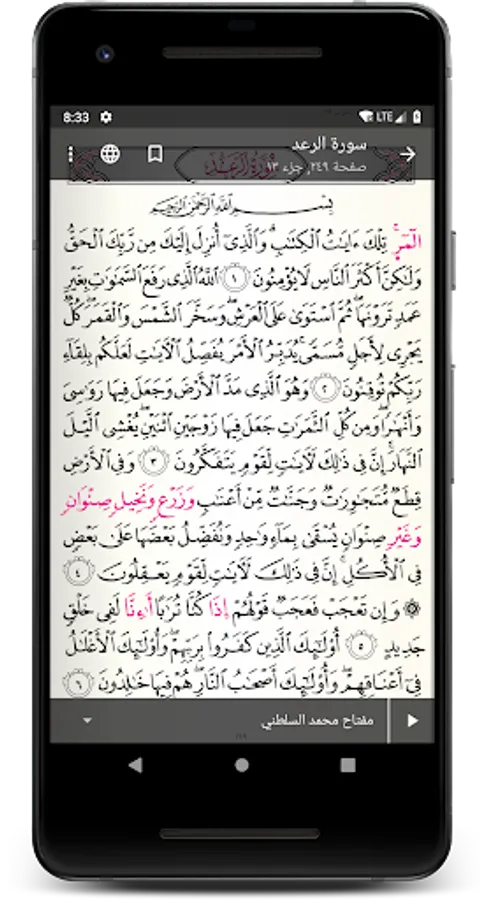 8:33 LTE
سورة الرعد
صفحة ٢٤٩, جزء ١٣
سُورَةُ الرَّعْدِ
بِسْمِ اللَّهِ الرَّحْمَٰنِ الرَّحِيمِ
الٓمٓر تِلْكَ ءَايَٰتُ ٱلْكِتَٰبِ وَٱلَّذِىٓ أُنزِلَ إِلَيْكَ مِن رَّبِّكَ ٱلْحَقُّ
وَلَٰكِنَّ أَكْثَرَ ٱلنَّاسِ لَا يُؤْمِنُونَ ١ ٱللَّهُ ٱلَّذِى رَفَعَ ٱلسَّمَٰوَٰتِ بِغَيْرِ
عَمَدٍ تَرَوْنَهَا ثُمَّ ٱسْتَوَىٰ عَلَى ٱلْعَرْشِ وَسَخَّرَ ٱلشَّمْسَ وَٱلْقَمَرَ كُلٌّ
يَجْرِى لِأَجَلٍ مُّسَمًّى يُدَبِّرُ ٱلْأَمْرَ يُفَصِّلُ ٱلْءَايَٰتِ لَعَلَّكُم بِلِقَآءِ
رَبِّكُمْ تُوقِنُونَ ٢ وَهُوَ ٱلَّذِى مَدَّ ٱلْأَرْضَ وَجَعَلَ فِيهَا رَوَٰسِىَ
وَأَنْهَٰرًا وَمِن كُلِّ ٱلثَّمَرَٰتِ جَعَلَ فِيهَا زَوْجَيْنِ ٱثْنَيْنِ يُغْشِى ٱلَّيْلَ
ٱلنَّهَارَ إِنَّ فِى ذَٰلِكَ لَءَايَٰتٍ لِّقَوْمٍ يَتَفَكَّرُونَ ٣ وَفِى ٱلْأَرْضِ
قِطَعٌ مُّتَجَٰوِرَٰتٌ وَجَنَّٰتٌ مِّنْ أَعْنَٰبٍ وَزَرْعٍ وَنَخِيلٍ صِنْوَانٍ
وَغَيْرِ صِنْوَانٍ يُسْقَىٰ بِمَآءٍ وَٰحِدٍ وَنُفَضِّلُ بَعْضَهَا عَلَىٰ بَعْضٍ
فِى ٱلْأُكُلِ إِنَّ فِى ذَٰلِكَ لَءَايَٰتٍ لِّقَوْمٍ يَعْقِلُونَ ٤
۞ وَإِن تَعْجَبْ فَعَجَبٌ قَوْلُهُمْ إِذَا كُنَّا تُرَٰبًا أَءِنَّا لَفِى خَلْقٍ
جَدِيدٍ ٥ أُو۟لَٰٓئِكَ ٱلَّذِينَ كَفَرُوا۟ بِرَبِّهِمْ وَأُو۟لَٰٓئِكَ ٱلْأَغْلَٰلُ
فِىٓ أَعْنَاقِهِمْ وَأُو۟لَٰٓئِكَ أَصْحَٰبُ ٱلنَّارِ هُمْ فِيهَا خَٰلِدُونَ ٦
مفتاح محمد السلطني